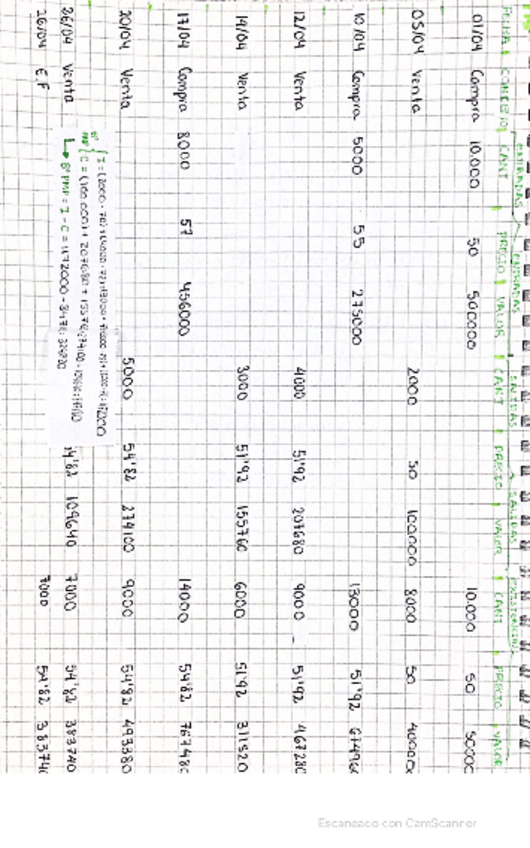 ENTRADAS | SALIDAS | EXISTENCIAS
FECHA | CONCEPTO | CANT | PRECIO | VALOR | CANT | PRECIO | VALOR | CANT | PRECIO | VALOR
01/04 Compra 10.000 50 500000 10.000 50 50000
05/04 Venta 2000 50 100.000 8000 50 40000
10/04 Compra 5000 55 275000 13000 51'92 67496
12/04 Venta 4000 51'92 207680 9000 51'92 467280
14/04 Venta 3000 51'92 155760 6000 51'92 311520
17/04 Compra 8000 57 456000 14000 54'82 767480
20/04 Venta 5000 54'82 274100 9000 54'82 493380
26/04 Venta 4'82 109640 7000 54'82 383740
26/04 E.F 7000 54'82 38374
Escaneado con CamScanner